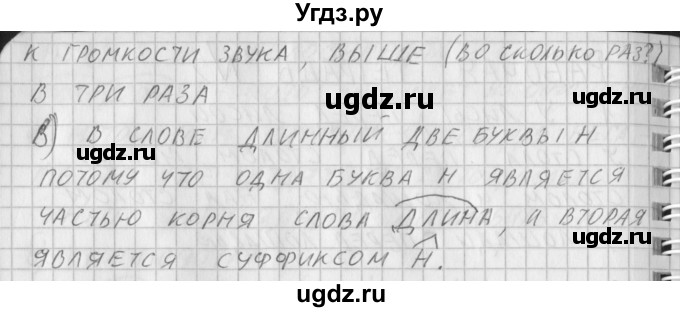 Угдз.ру
К ГРОМКОСТИ ЗВУКА, ВЫШЕ (ВО СКОЛЬКО РАЗ?)
В ТРИ РАЗА
ugdz.ru ugdz.ru
В) В СЛОВЕ ДЛИННЫЙ ДВЕ БУКВЫ Н
ugdz.ru
ПОТОМУ ЧТО ОДНА БУКВА Н ЯВЛЯЕТСЯ
ugdz.ru
ЧАСТЬЮ КОРНЯ СЛОВА ДЛИНА, И ВТОРАЯ
ugdz.ru
ЯВЛЯЕТСЯ СУФФИКСОМ Н.
ugdz.ru
ugdz.ru